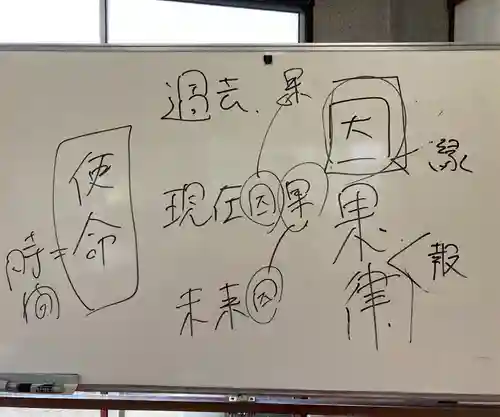 過去、果
現在因果
未来因
因果律
縁
報
使命
=時間